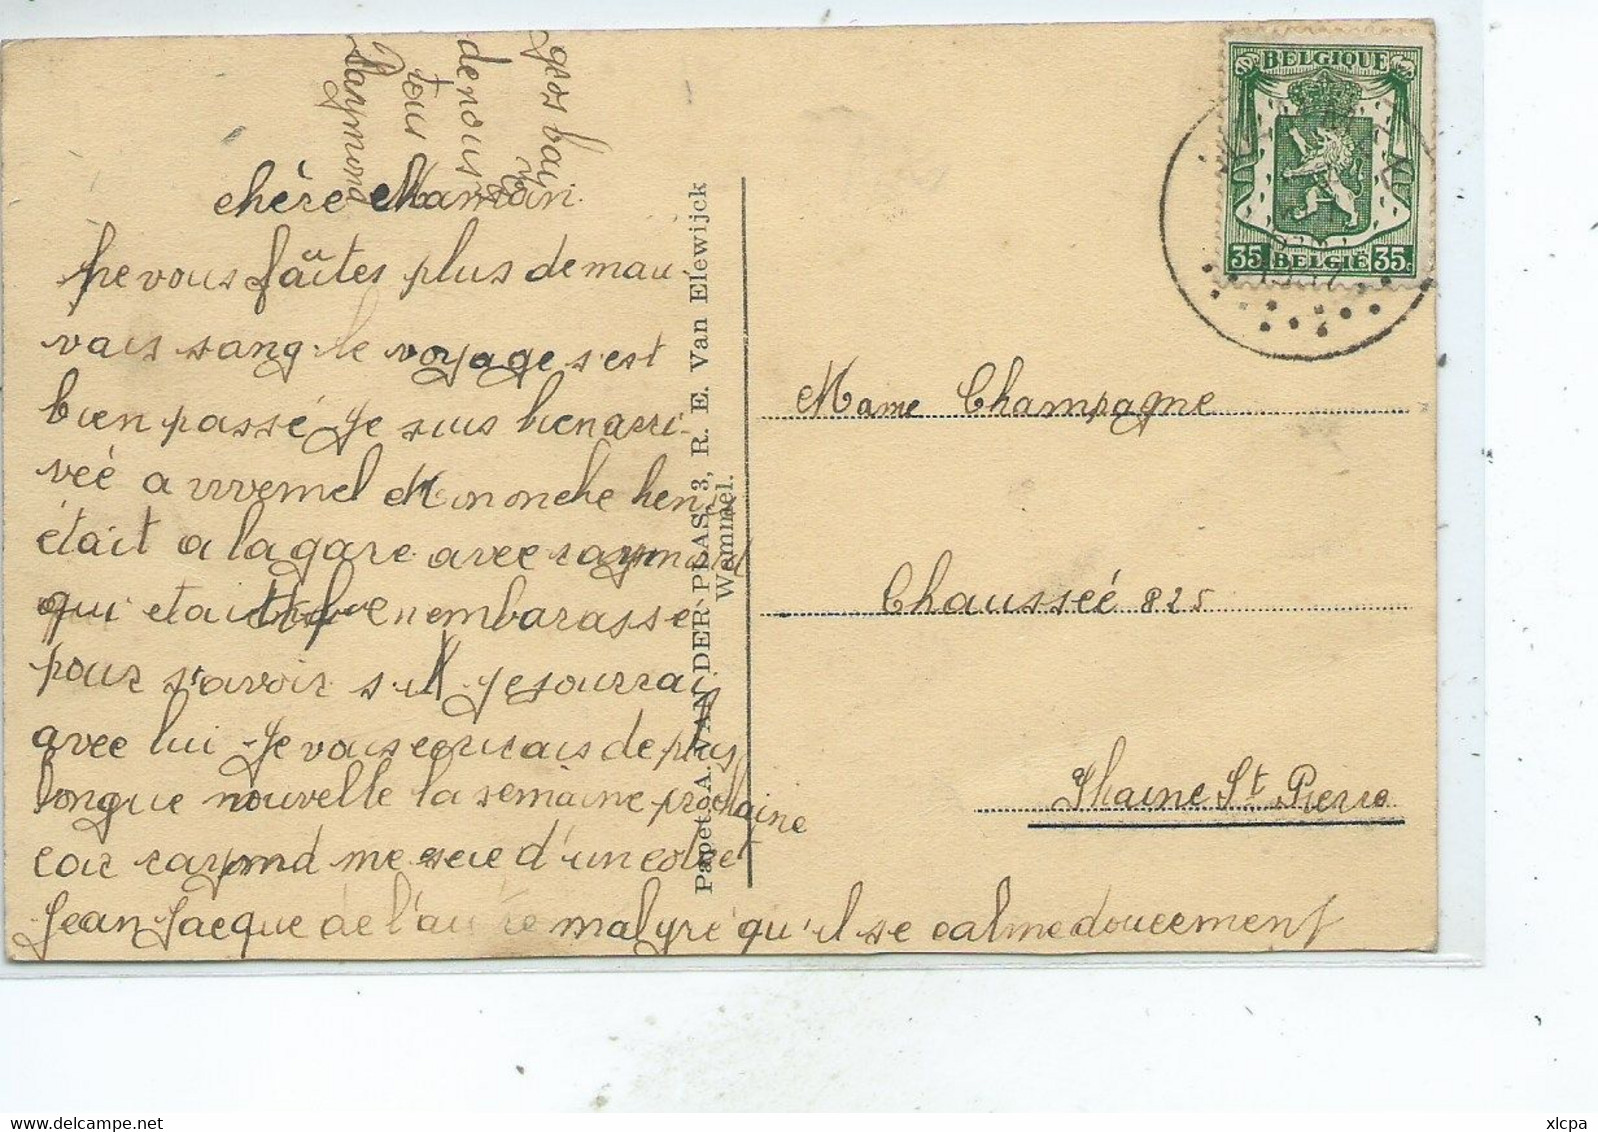 chère Maman
Ne vous faites plus de mau
vais sang. le voyage s'est
bien passé. Je suis bien arri-
veé a wemel Mon onche henri
était a la gare avec raymond
qui etait en embarasse
pour s'avoir s'il jesourrai
avec lui. Je vais ecricais de plus
longue nouvelle la semaine prochaine
car raymond me d'un coté et
Jean Jacque de l'autre malgré qu'il se calme doucement
gros bai
de nous
tous
Raymond
Papet. A. VAN DER PLAS, 3, R. E. Van Elewijck
Wemmel.
BELGIQUE
35 BELGIË 35c
Mame Champagne
Chaussée 825
Thaine St Pierre
xlcpa